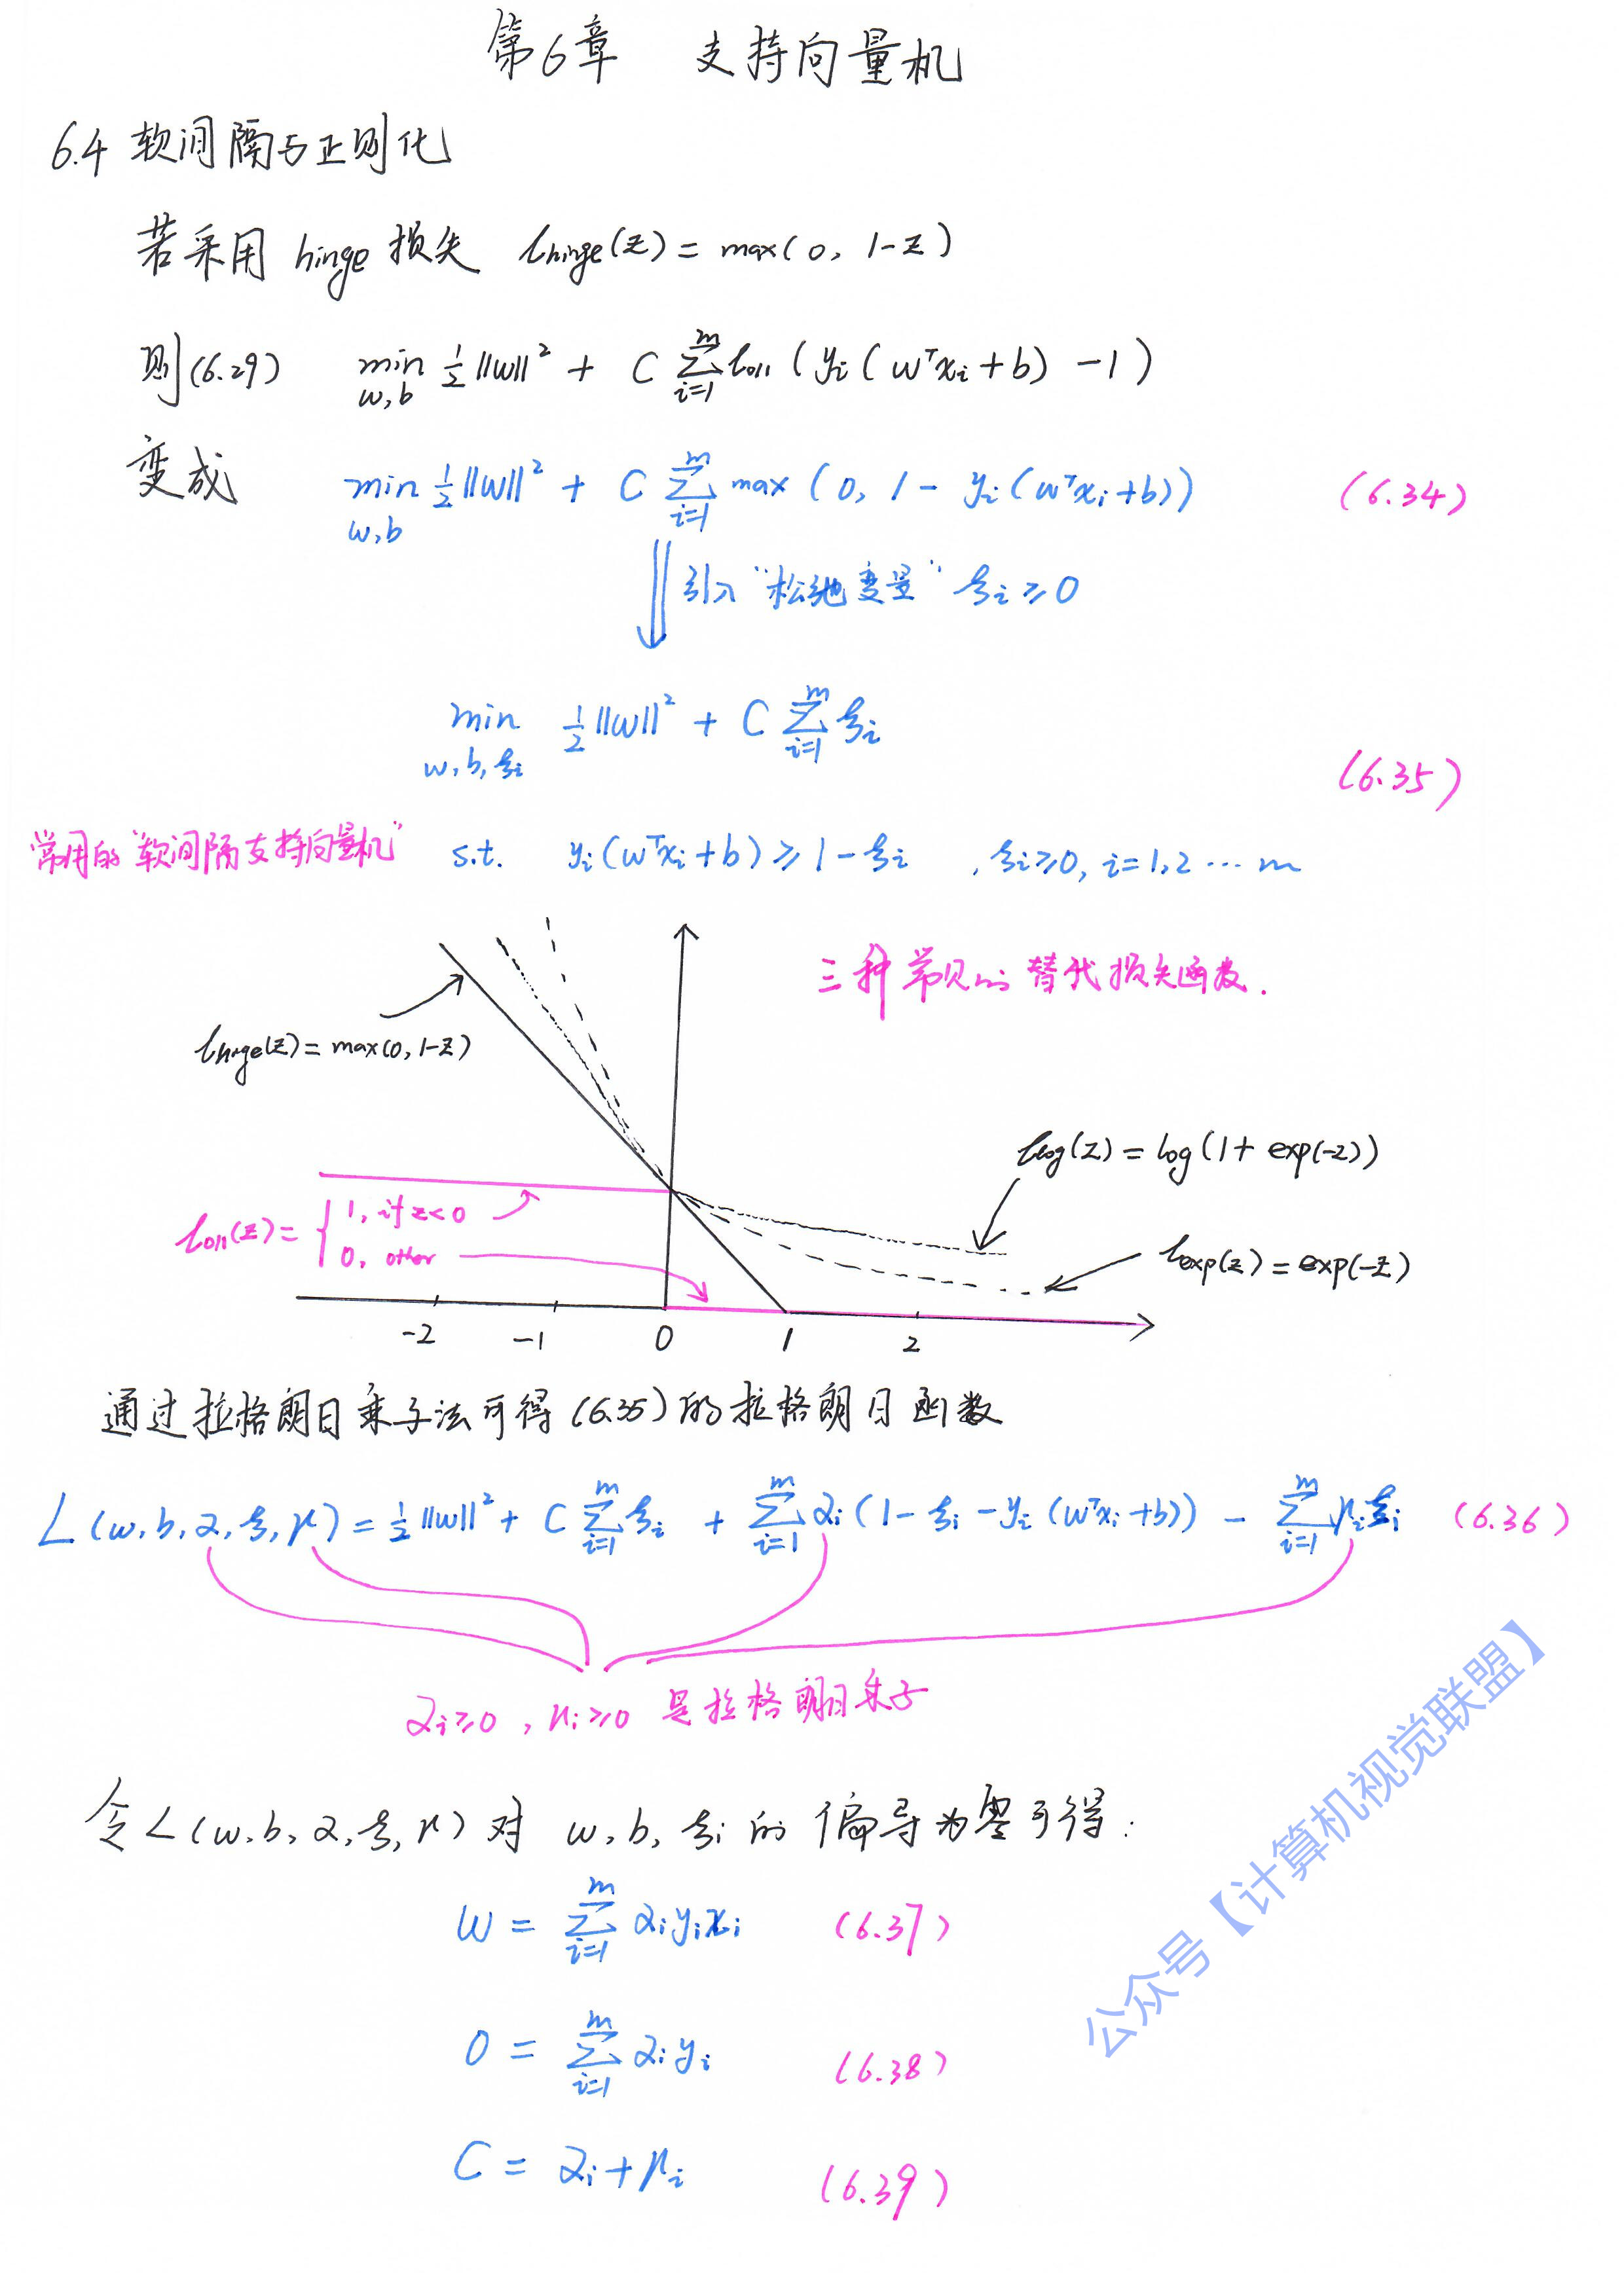 第6章 支持向量机
6.4 软间隔与正则化
若采用 hinge 损失 ℓhinge(z) = max(0, 1-z)
则(6.29) min w,b ½||w||² + C ∑ᵐᵢ₌₁ ℓ0/1 (yᵢ(wᵀxᵢ+b) -1)
变成 min w,b ½||w||² + C ∑ᵐᵢ₌₁ max (0, 1 - yᵢ(wᵀxᵢ+b)) (6.34)
引入"松弛变量" ξᵢ≥0
min w,b,ξᵢ ½||w||² + C ∑ᵐᵢ₌₁ ξᵢ
(6.35)
常用的"软间隔支持向量机" s.t. yᵢ(wᵀxᵢ+b) ≥ 1-ξᵢ , ξᵢ≥0, i=1,2 … m
三种常见的替代损失函数.
ℓhinge(z) = max(0, 1-z)
ℓlog(z) = log(1+ exp(-z))
ℓ0/1(z) = { 1, if z<0
0, other
ℓexp(z) = exp(-z)
-2 -1 0 1 2
通过拉格朗日乘子法可得(6.35)的拉格朗日函数
L(w,b,α,ξ,μ) = ½||w||² + C ∑ᵐᵢ₌₁ ξᵢ + ∑ᵐᵢ₌₁ αᵢ(1-ξᵢ-yᵢ(wᵀxᵢ+b)) - ∑ᵐᵢ₌₁ μᵢξᵢ (6.36)
αᵢ≥0, μᵢ≥0 是拉格朗日乘子
令L(w,b,α,ξ,μ)对 w,b,ξᵢ的偏导为零可得:
w = ∑ᵐᵢ₌₁ αᵢyᵢxᵢ (6.37)
0 = ∑ᵐᵢ₌₁ αᵢyᵢ (6.38)
C = αᵢ+μᵢ (6.39)
公众号【计算机视觉联盟】